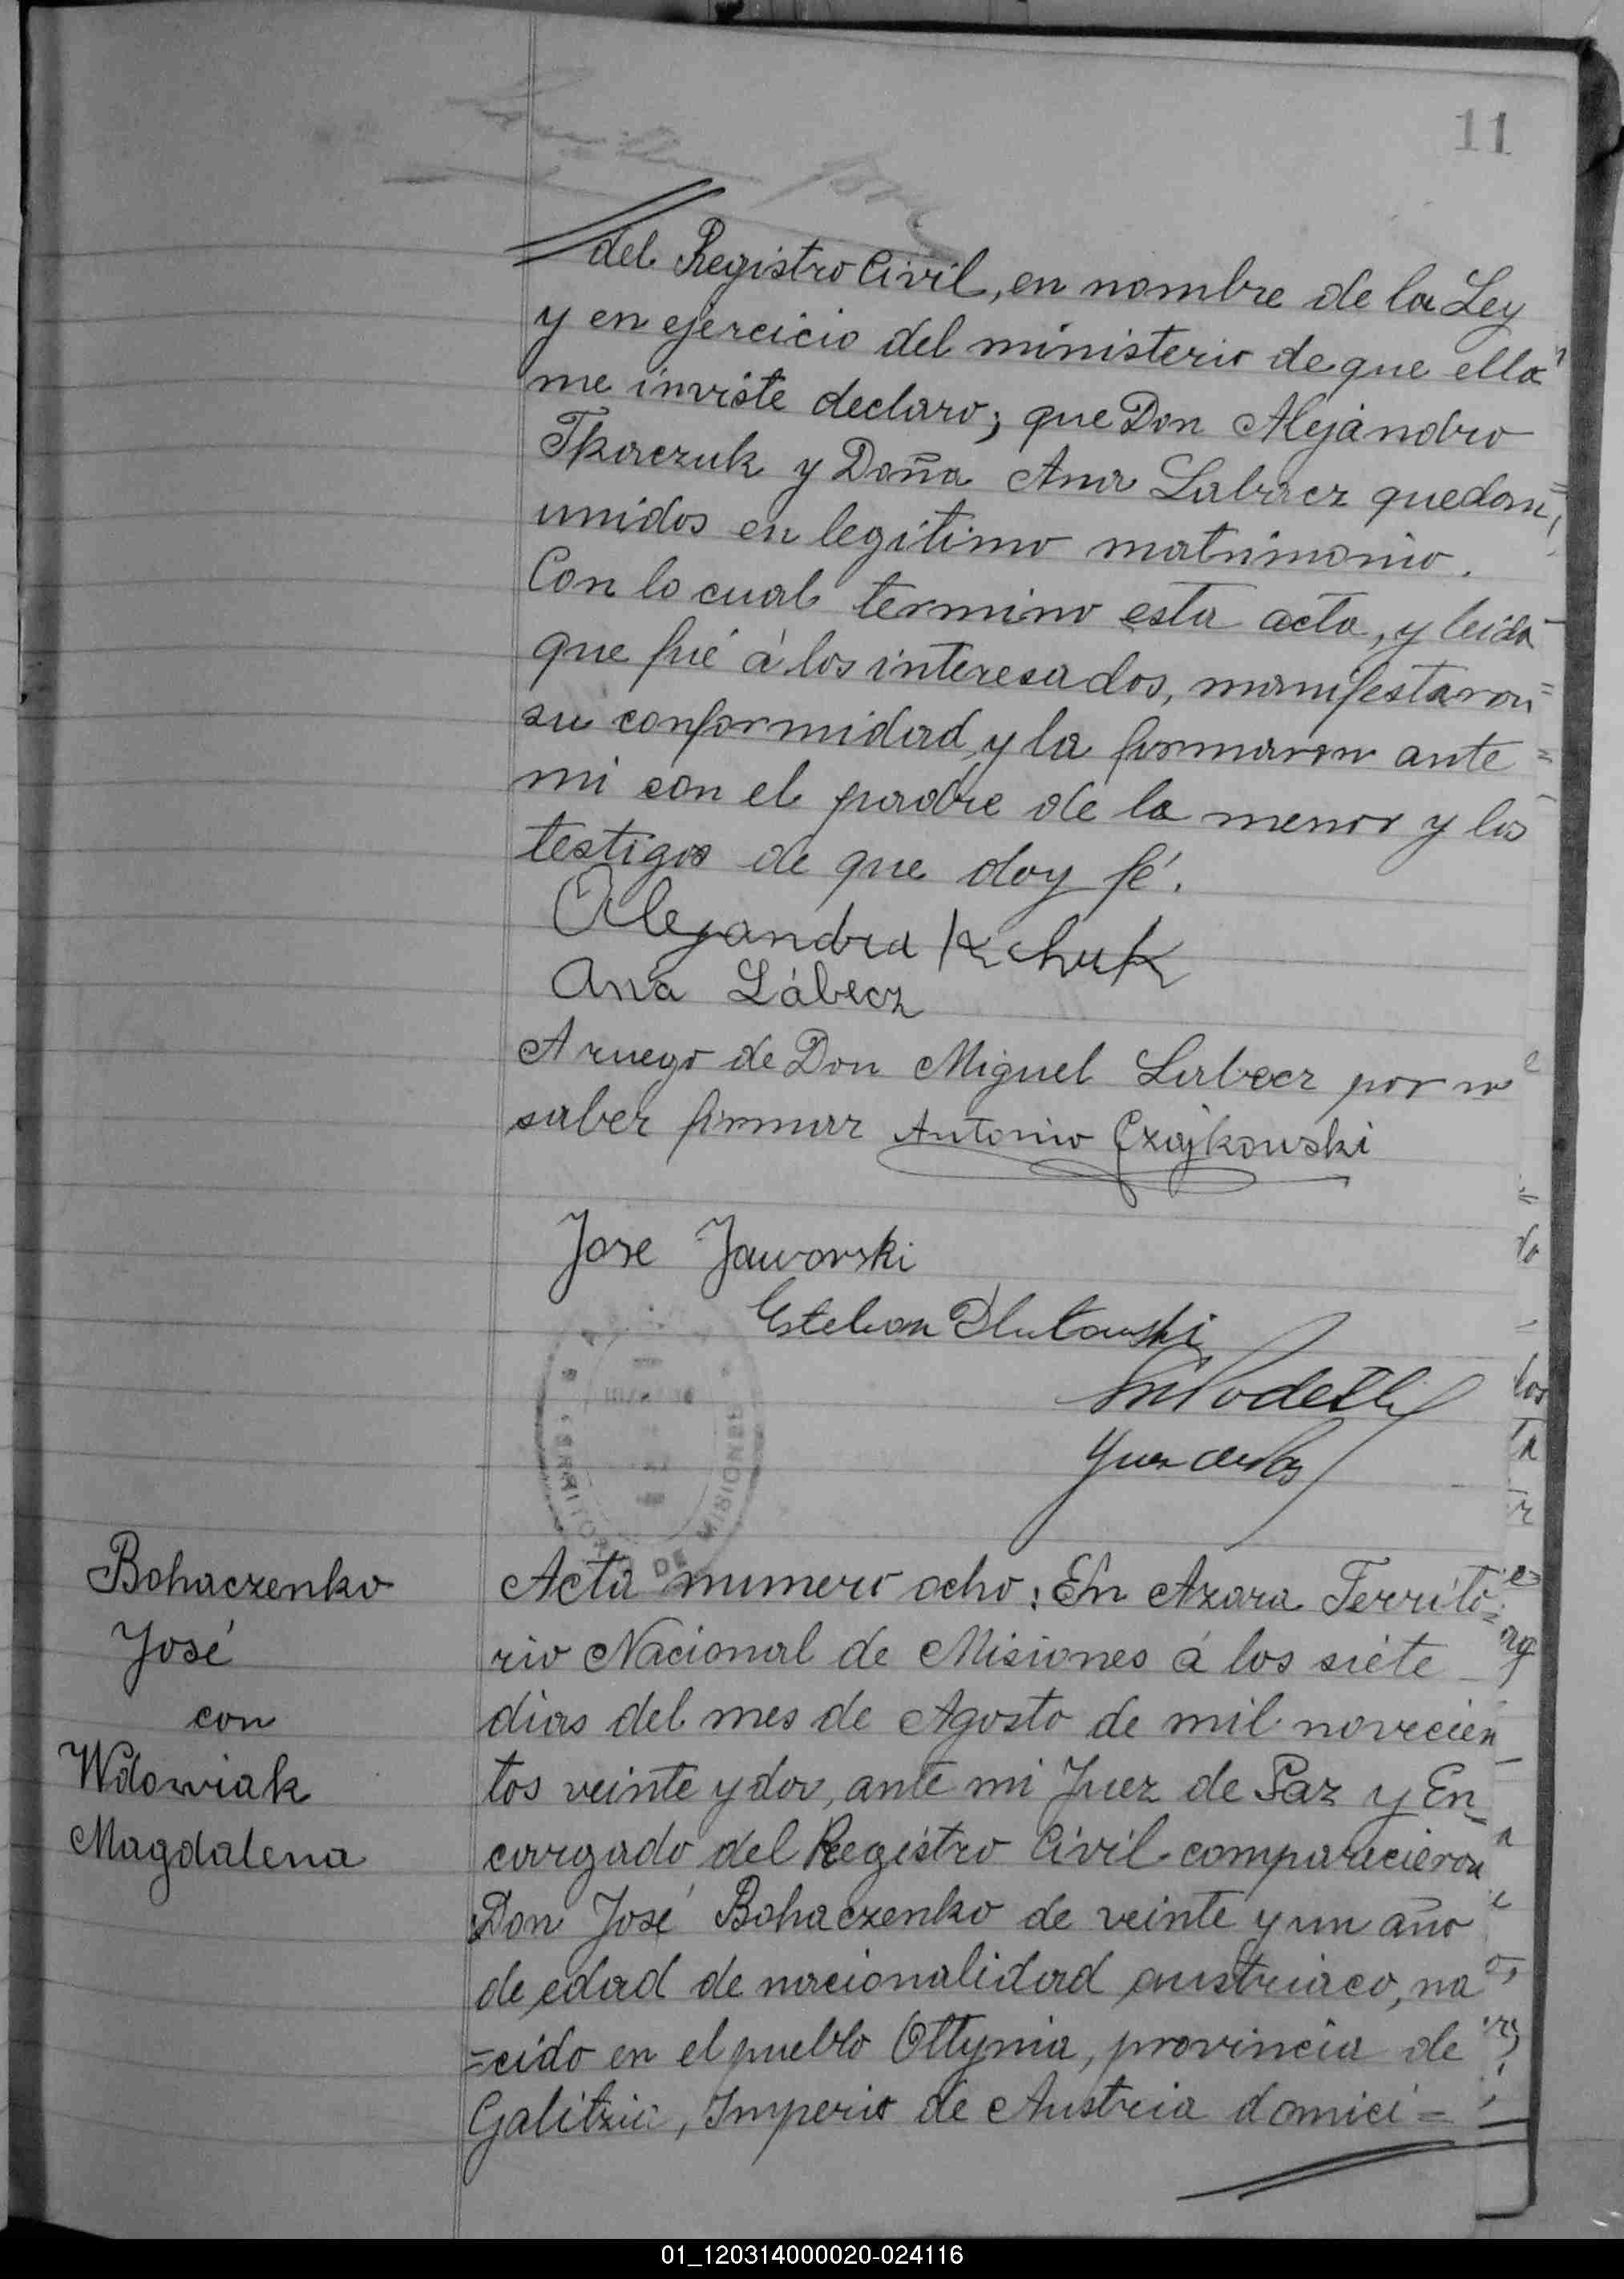 11
del Registro Civil, en nombre de la Ley
y en ejercicio del ministerio de que ella
me inviste declaro; que Don Alejandro
Tkaczuk y Doña Ana Labacz quedan
unidos en legítimo matrimonio.
Con lo cual termino esta acta, y leida
que fué á los interesados, manifestaron
su conformidad y la firmaron ante
mi con el padre de la menor y los
testigos de que doy fé.
Alejandro
Ana Lábecz
A ruego de Don Miguel Labecz por no
saber firmar Antonio Czajkowski
Jose Jaworski
Esteban Dlutowski
Juez de Paz
TERRITORIO DE MISIONES
Bohaczenko
José
con
Wdowiak
Magdalena
Acta numero ocho: En Azara Territo=
rio Nacional de Misiones á los siete
dias del mes de Agosto de mil novecien
tos veinte y dos, ante mi Juez de Paz y En
cargado del Registro Civil comparecieron
Don José Bohaczenko de veinte y un año
de edad de nacionalidad austriaco, na
=cido en el pueblo Ottynia, provincia de
Galitzia, Imperio de Austria domici=
01_120314000020-024116